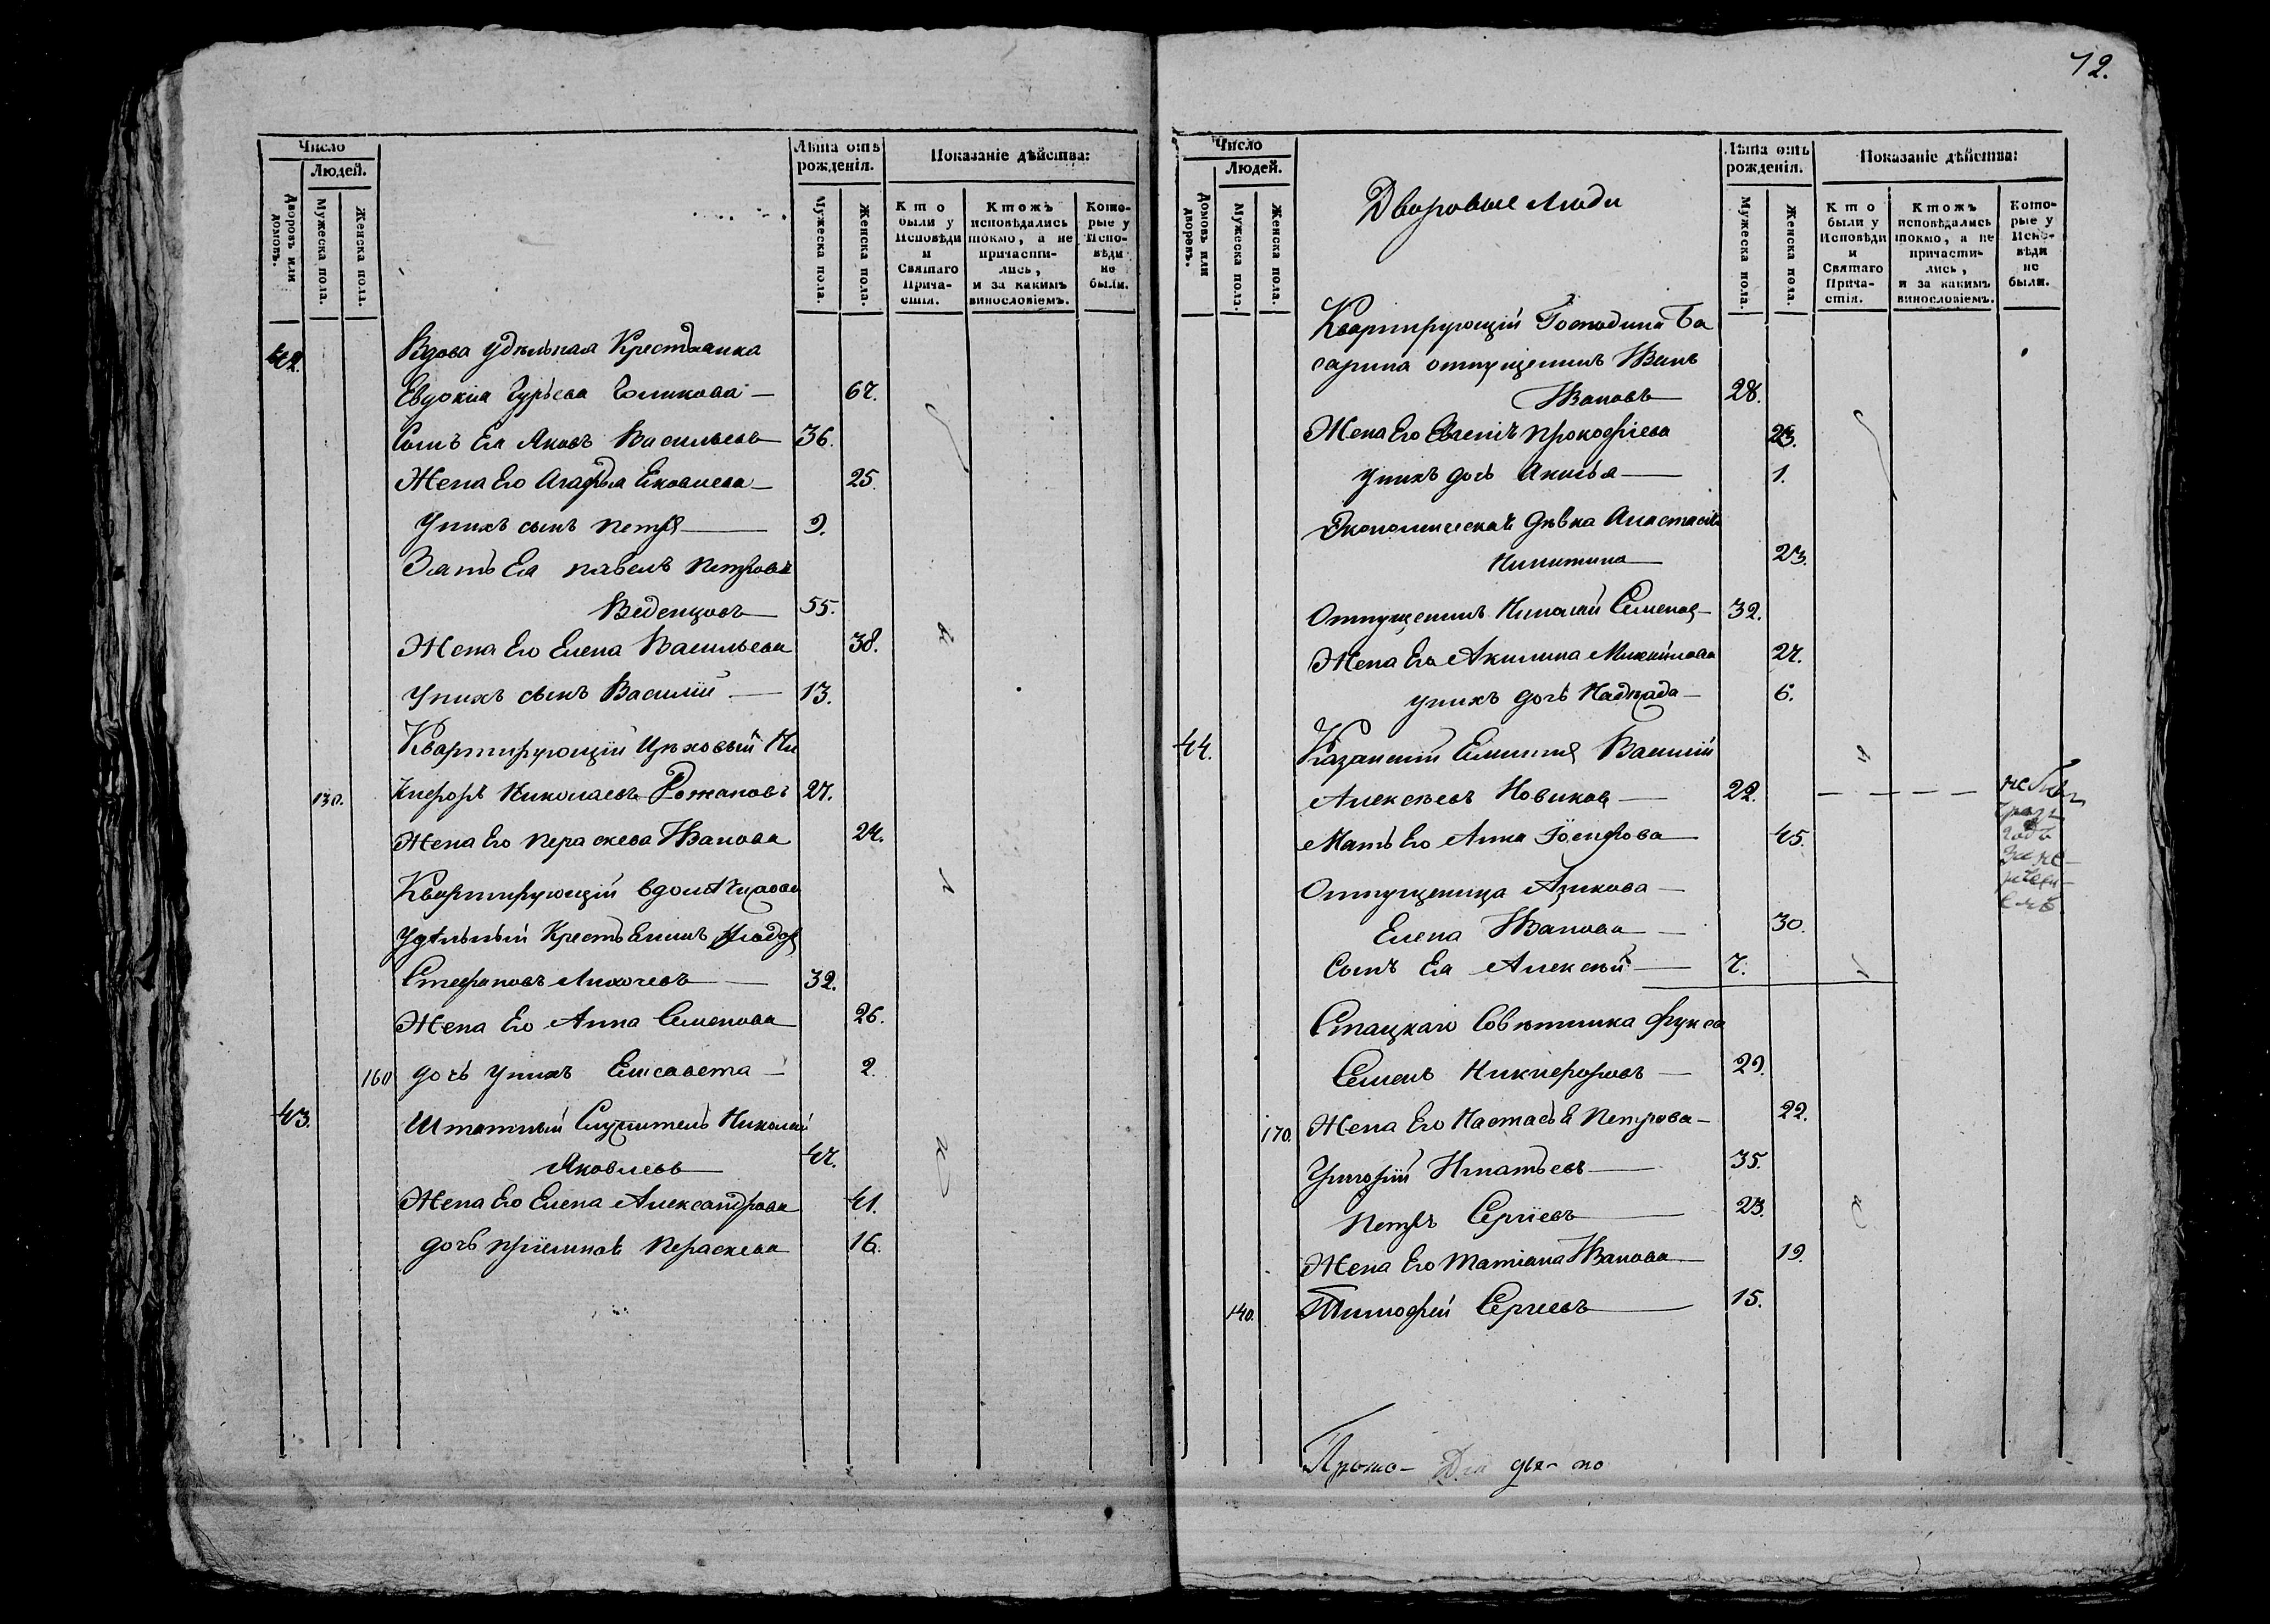 Число
Людей.
Дворовъ или домовъ.
Мужеска пола.
Женска пола.
Лѣта отъ рожденія.
Мужеска пола.
Женска пола.
Показаніе дѣйства:
Кто были у Исповѣди и Святаго Прича-стія.
Ктожъ исповѣдались токмо, а не причасти-лись, и за какимъ винословіемъ.
Кото-рые у Испо-вѣди не были.
42. Вдова удѣльная Крестьянка
Евдокіа Гурьева Голикова — 67.
Сынъ Ея Яковъ Васильевъ — 36.
Жена Его Агафья Яковлева — 25.
У нихъ сынъ Петръ — 9.
Зять Ея Павелъ Петровъ
Веденцовъ — 55.
Жена Его Елена Васильева 38.
У нихъ сынъ Василій — 13.
Квартирующій Цѣховый Ни
130. кифоръ Николаевъ Рожановъ 27.
Жена Его Пераскева Иванова 24.
Квартирующій в домѣ
Удѣльный Крестьянинъ
Стефановъ Лихачевъ — 32.
Жена Его Анна Семенова 26.
160 дочь у нихъ Елисавета — 2.
43. Штатный Служитель Николай
Яковлевъ — 47.
Жена Его Елена Александрова 41.
дочь пріемная Пераскева 16.
12.
Число
Людей.
Домовъ или дворовъ.
Мужеска пола.
Женска пола.
Дворовые люди
Лѣта отъ рожденія.
Мужеска пола.
Женска пола.
Показаніе дѣйства:
Кто были у Исповѣди и Святаго Прича-стія.
Ктожъ исповѣдались токмо, а не причасти-лись, и за какимъ винословіемъ.
Кото-рые у Испо-вѣди не были.
Квартирующій Господина Ба
сарина отпущенникъ Иванъ
Ивановъ — 28.
Жена Его Прокофіева 23.
у нихъ дочь — 1.
Экономическая дѣвка Анастасія
Никитина — 23.
Отпущенникъ Николай Семеновъ — 32.
Жена Его Акилина Михайлова 27.
у нихъ дочь Надежда — 6.
44. Казанскій Василій
Алексѣевъ Новиковъ — 22. — — — —
Мать Его Анна Іосифова 45.
Отпущенница
Елена Иванова — 30.
Сынъ Ея Алексѣй — 7.
Стацкаго Совѣтника Фукса
Семенъ Никифоровъ — 29.
170. Жена Его Настасья Петрова — 22.
Григорій Игнатьевъ — 35.
Петръ Сергіевъ — 23.
Жена Его Татіана Иванова — 19.
140. Тимофей Сергіевъ — 15.